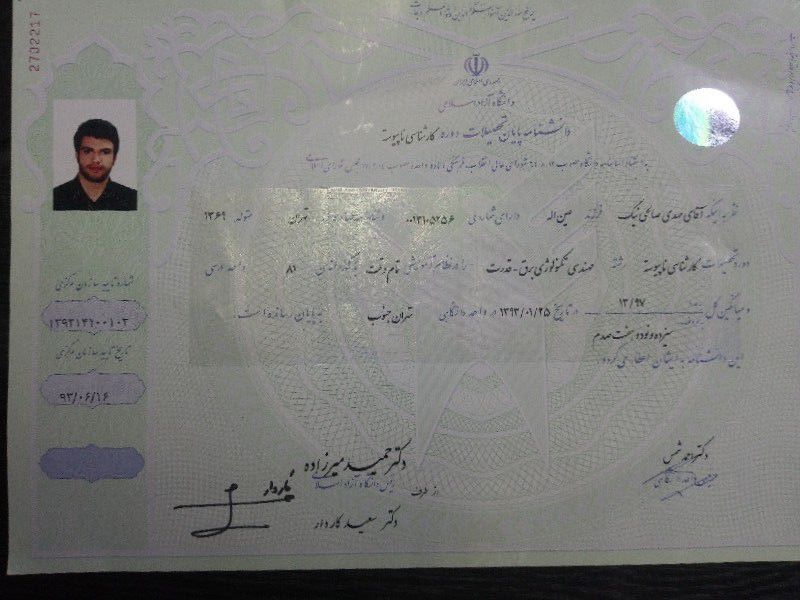 2702217
جمهوری اسلامی ایران
دانشگاه آزاد اسلامی
دانشنامه پایان تحصیلات دوره کارشناسی ناپیوسته
نظر به اینکه آقای مهدی صالحی نیک فرزند عین اله دارای شماره ملی تهران متولد ۱۳۶۹
دوره تحصیلات کارشناسی ناپیوسته رشته مهندسی تکنولوژی برق - قدرت را در نظام آموزشی تمام وقت با گذراندن ۸۱ واحد درسی
و میانگین کل ۱۳/۹۷ در تاریخ ۱۳۹۳/۰۱/۲۵ در واحد دانشگاهی تهران جنوب به پایان رسانده است.
سیزده و نود و هفت صدم
این دانشنامه به ایشان اعطا می گردد.
شماره تایید سازمان مرکزی
۱۳۹۳۱۴۱۰۰۱۰۳
تاریخ تایید سازمان مرکزی
۹۳/۰۶/۱۶
دکتر حمید میرزاده
رئیس دانشگاه آزاد اسلامی
از طرف
دکتر سعید کاردار
دکتر احمد شمس